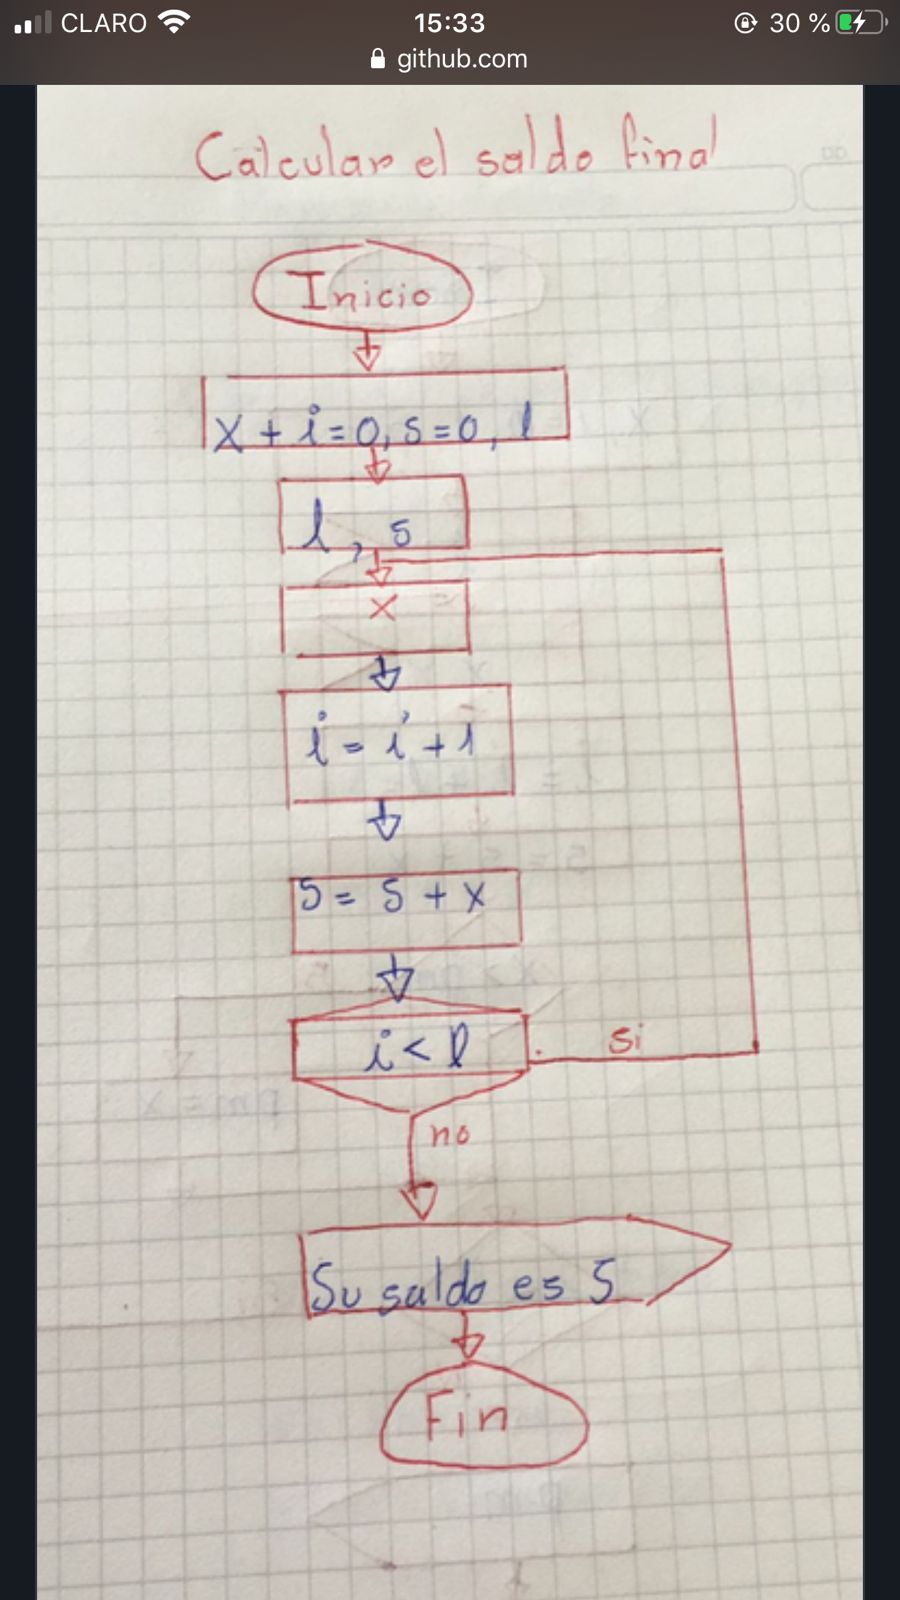 CLARO 15:33 30 %
github.com
Calcular el saldo final
Inicio
X + i = 0, s = 0, l
l, s
x
i = i + 1
S = S + x
i < l
si
no
Su saldo es S
Fin